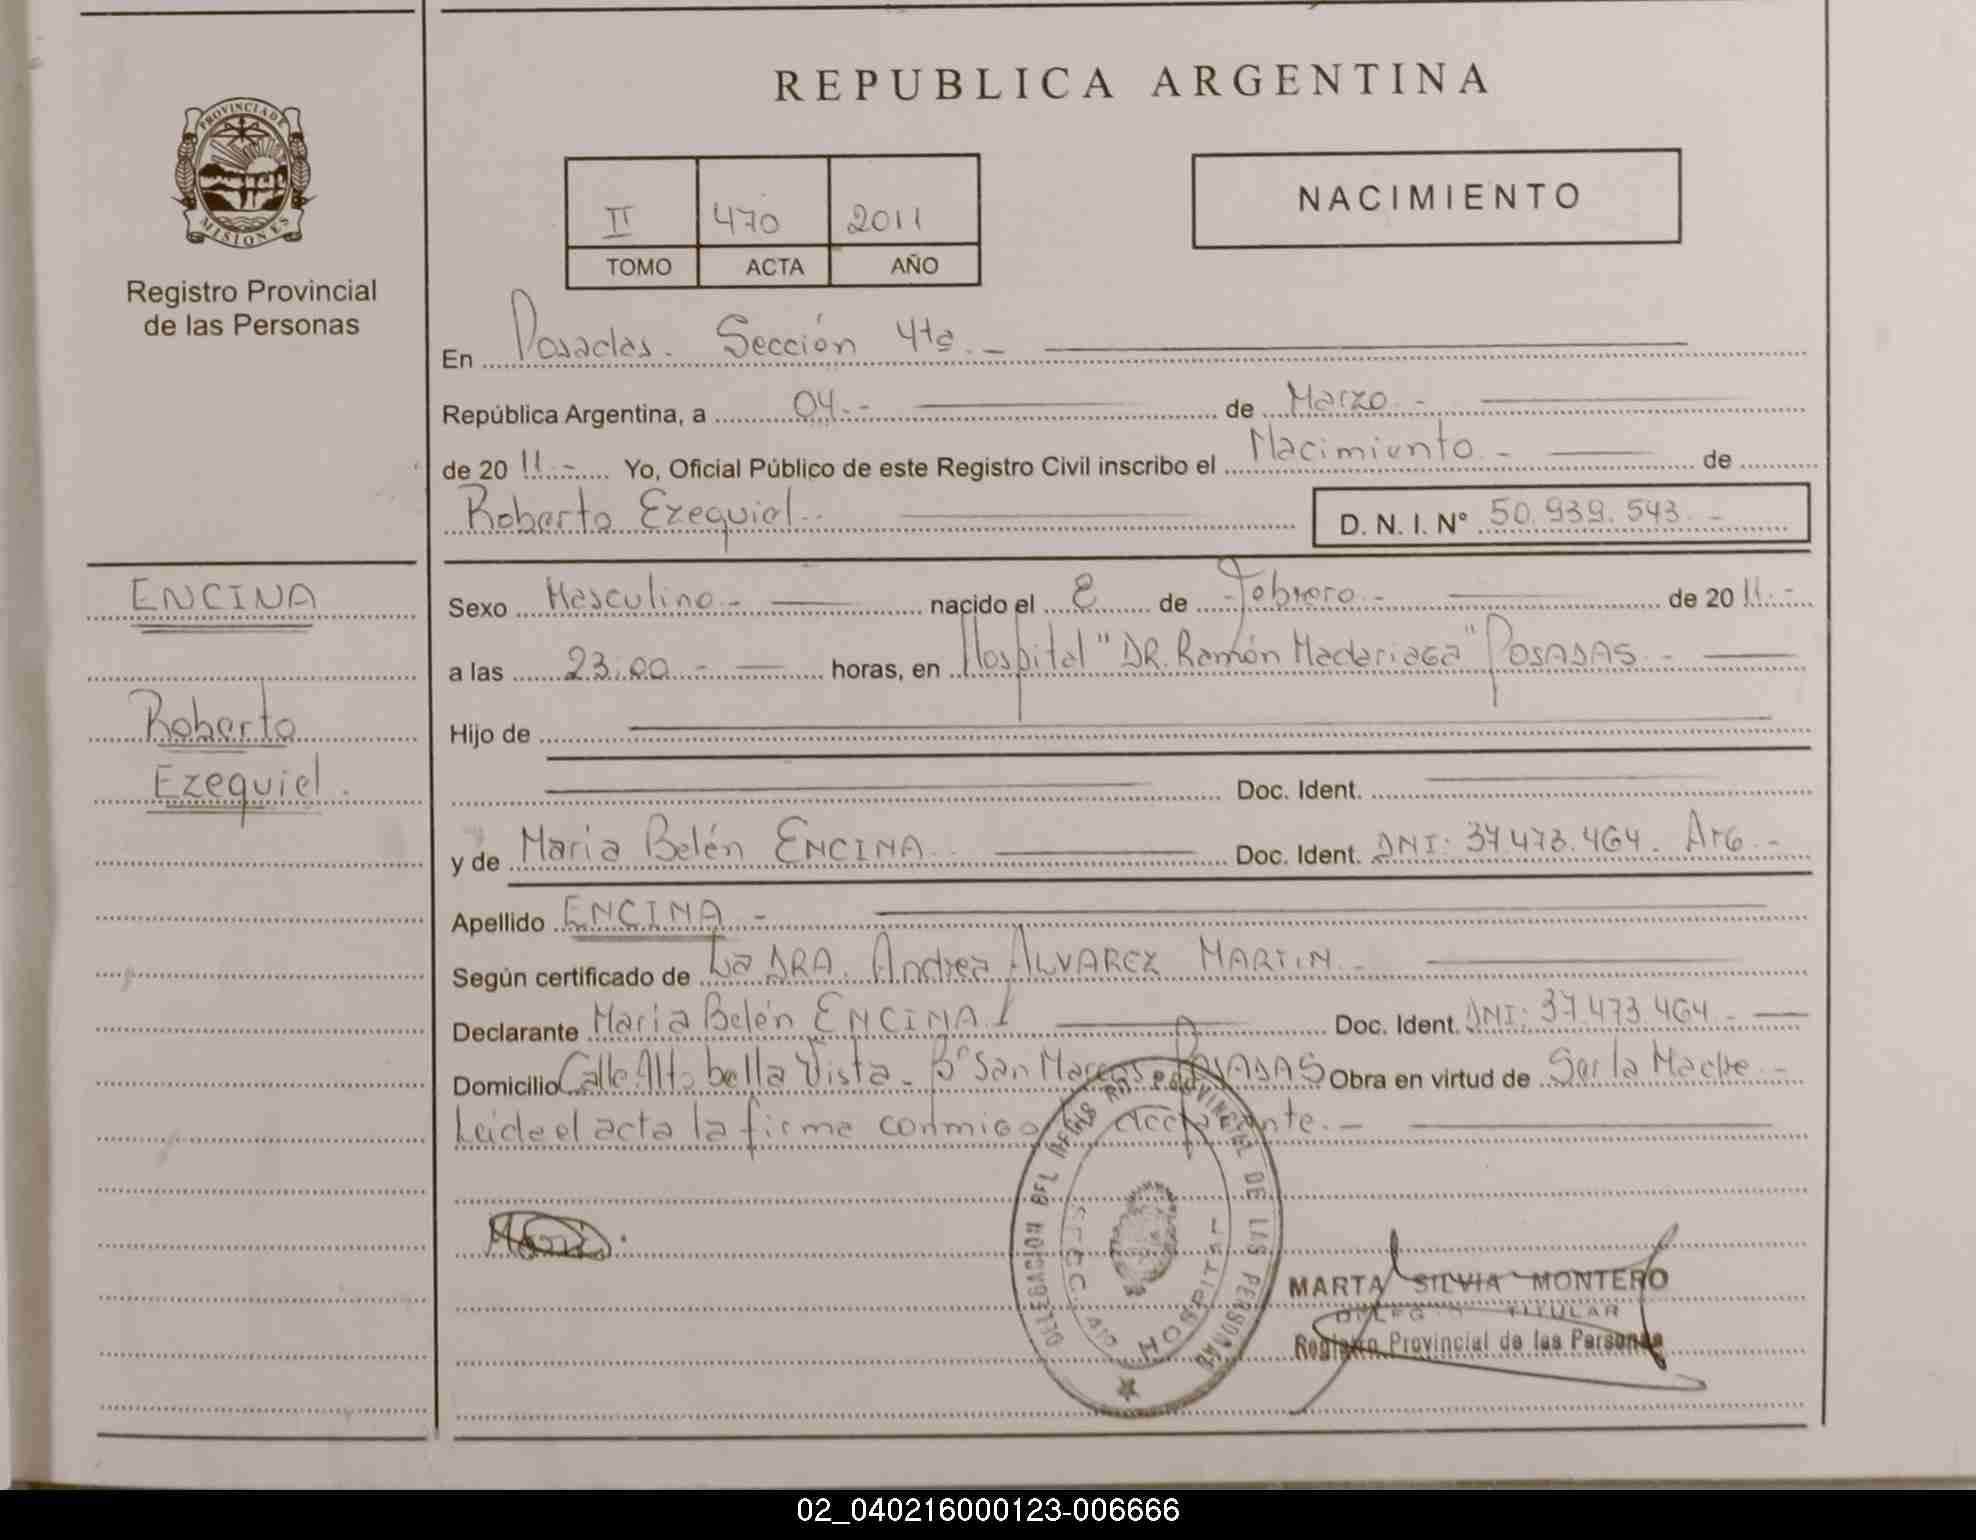 PROVINCIA DE
MISIONES
Registro Provincial
de las Personas
REPUBLICA ARGENTINA
II 470 2011
TOMO ACTA AÑO
NACIMIENTO
En Posadas. Sección 4ta.-
República Argentina, a 04.- de Marzo.-
de 2011.- Yo, Oficial Público de este Registro Civil inscribo el Nacimiento.- de
Roberto Ezequiel.- D. N. I. N° 50.939.543.-
ENCINA
Roberto
Ezequiel.
Sexo Masculino.- nacido el 8 de Febrero.- de 2011.-
a las 23:00.- horas, en Hospital "DR. Ramón Madariaga" POSADAS.-
Hijo de
Doc. Ident.
y de Maria Belén ENCINA.- Doc. Ident. DNI: 37.473.464. Arg.-
Apellido ENCINA.-
Según certificado de La DRA. Andrea ALVAREZ MARTIN.-
Declarante Maria Belén ENCINA Doc. Ident. DNI: 37.473.464.-
Domicilio Calle Alto bella Vista - B° San Marcos POSADAS Obra en virtud de Ser la Madre.-
Leida el acta la firma conmigo la declarante.-
DELEGACION DEL REGISTRO PROVINCIAL DE LAS PERSONAS
HOSPITAL
Maria
MARTA SILVIA MONTERO
TITULAR
Registro Provincial de las Personas
02_040216000123-006666